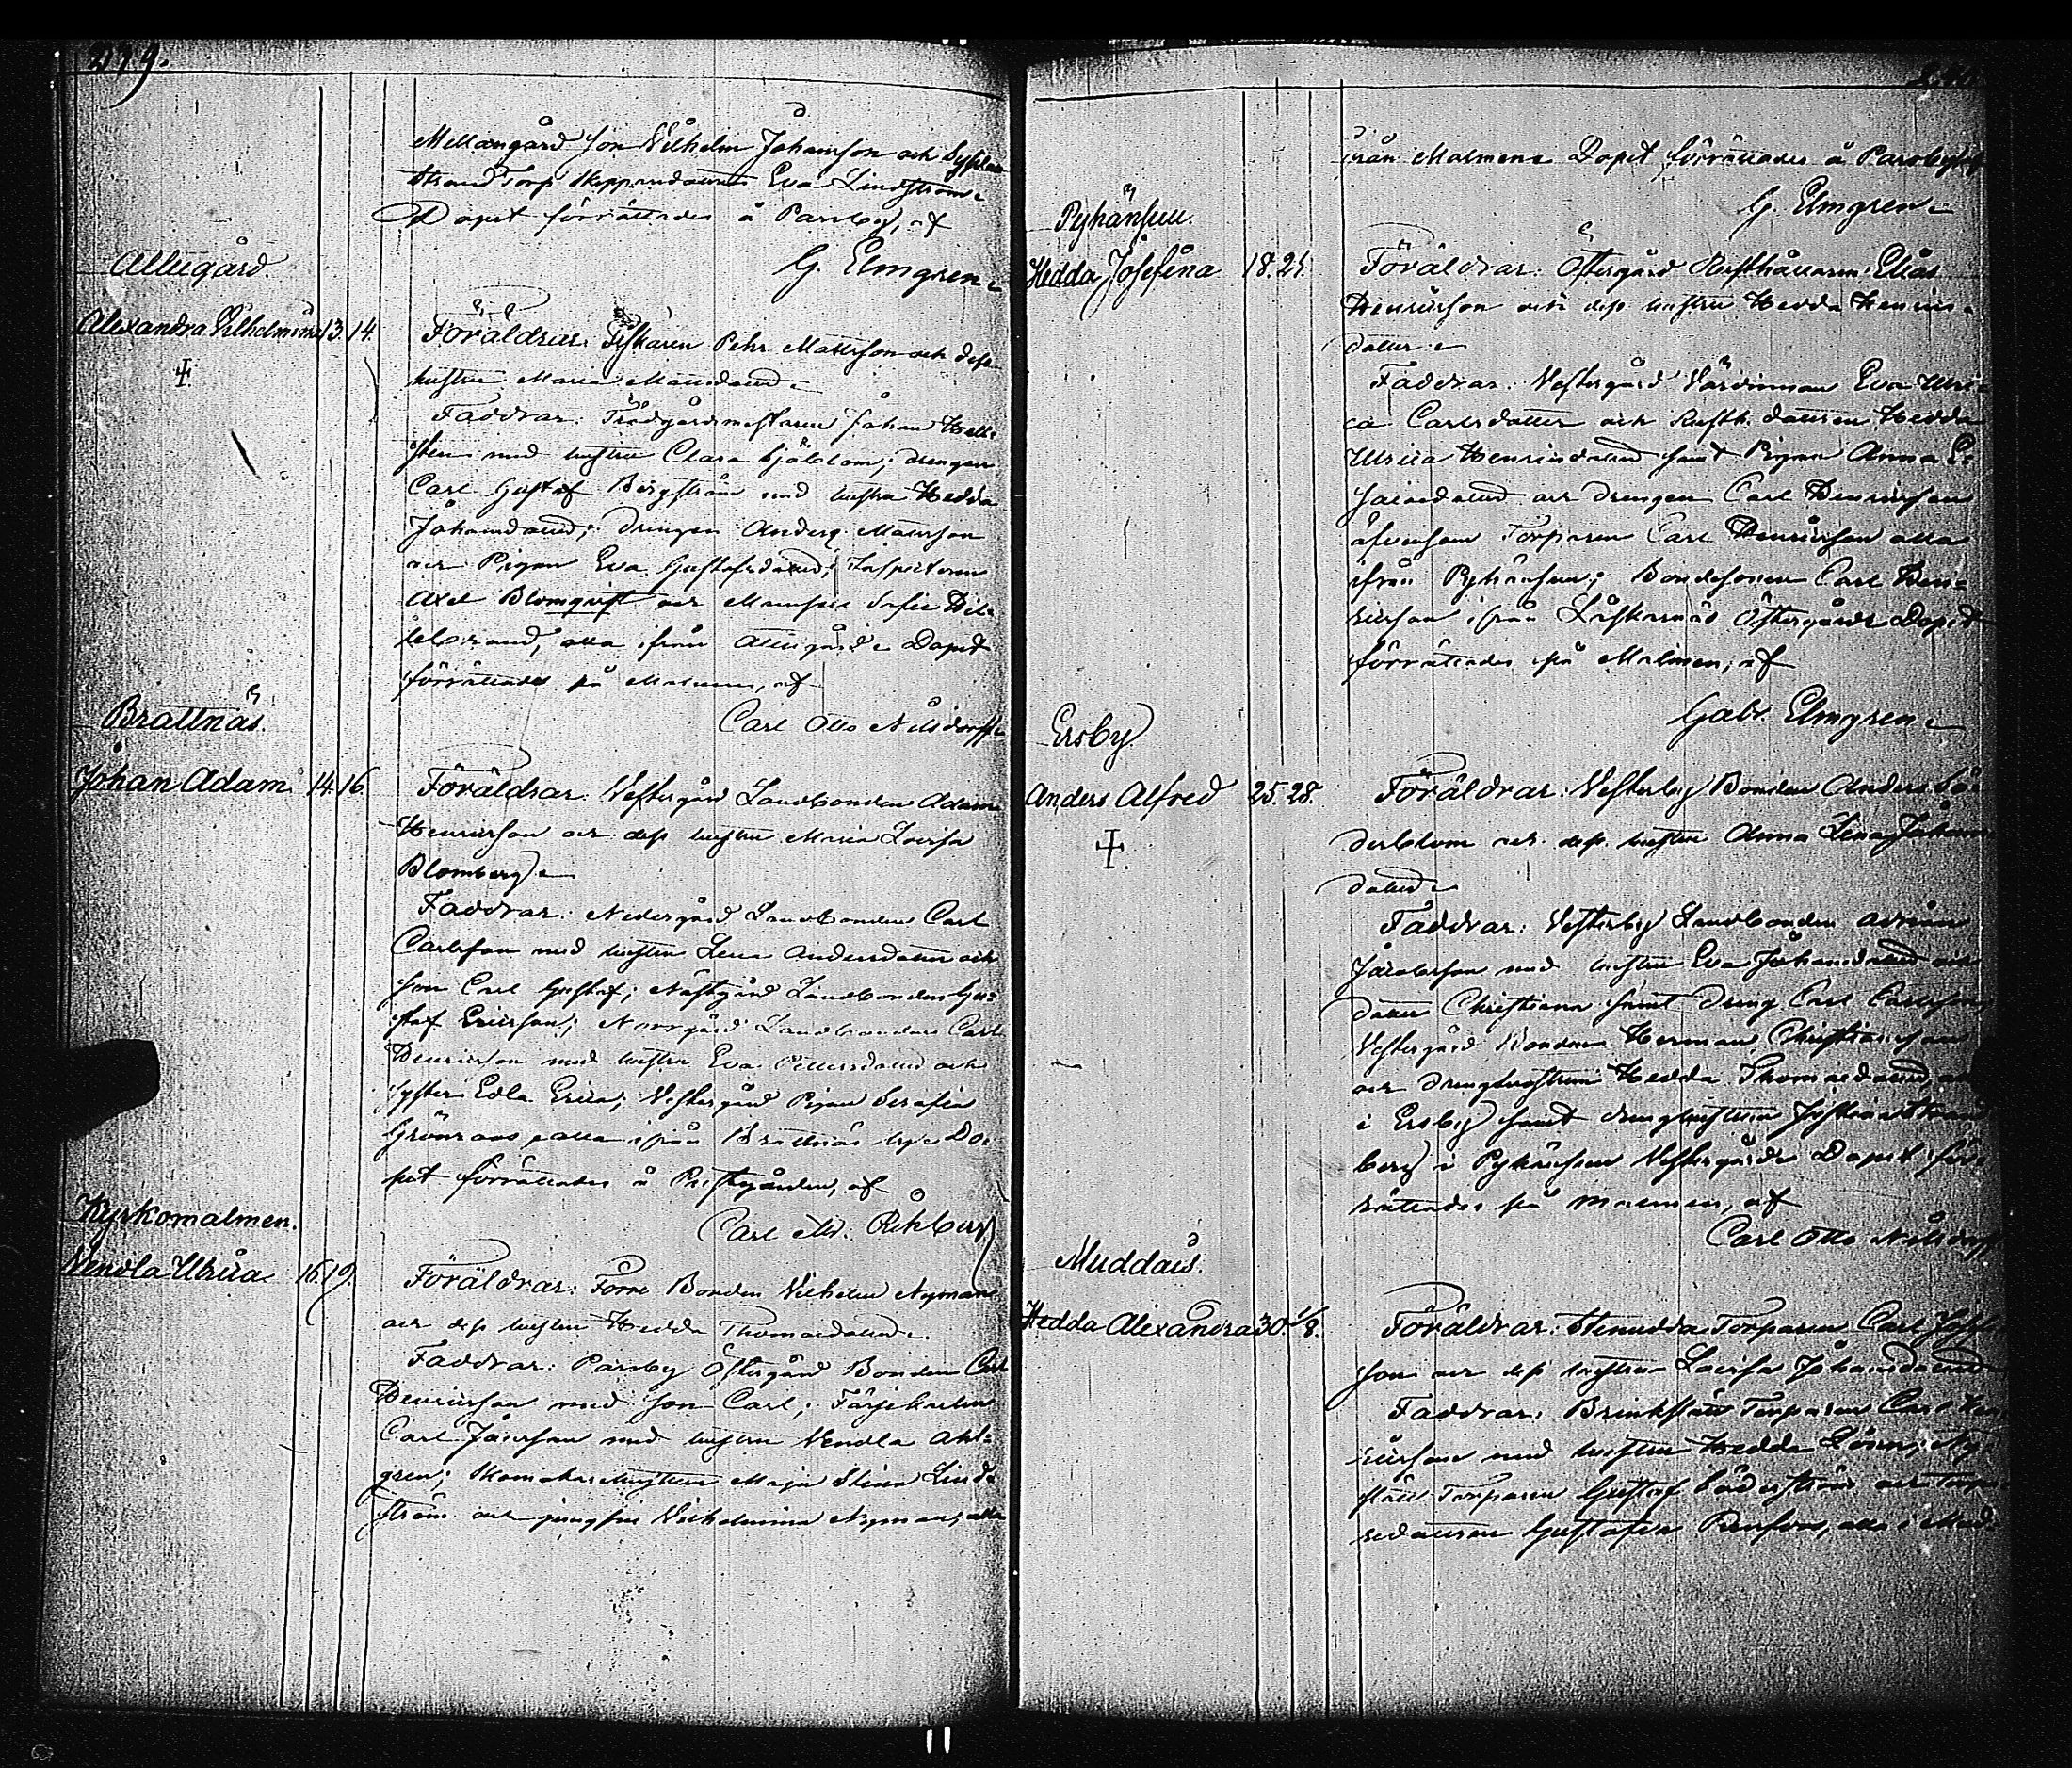 279.
Mellangård Son Wilhelm Johansson och
strand Torp Skeppardottren Eva Lindström.
Dopet förrättades å Parsby, af
G. Elmgren.
Allugård.
Alexandra Vilhelmina 13. 14.
Föräldrar: Fiskaren Pehr Mattsson och dess
hustru Maria Mattsdotter.
Faddrar: Trädgårdsmästaren Johan Hell-
sten med hustru Clara Sjöblom; drengen
Carl Gustaf Bergström med hustru Hedda
Johansdotter; Drengen Anders Mattsson
och Pigan Eva Gustafsdotter; Inspectoren
Axel Blomqvist och Mamsell Sofie Hil-
lebrand, alla ifrån Allugård. Dopet
förrättades på Malmen, af
Carl Otto Nilsdorff.
Brattnäs.
Johan Adam. 14. 16.
Föräldrar: Vestergård Landbonden Adam
Henricsson och dess hustru Maria Lovisa
Blomberg.
Faddrar: Nedergård Landbonden Carl
Carlsson med hustru Lena Andersdotter och
son Carl Gustaf; Nästgård Landbonden Gu-
staf Ericsson; Norrgård Landbonden Carl
Henricsson med hustru Eva Pettersdotter och
syster Edla Erica; Vestergård Pigan Serafia
Grönroos, alla ifrån Brattnäs by. Do-
pet förrättades å Prestgården, af
Carl M. Rehberg
Kyrkomalmen.
Vendla Ulrica. 16. 19.
Föräldrar: Förre Bonden Vilhelm Nyman
och dess hustru Hedda Thomasdotter.
Faddrar: Parsby Östergård Bonden Carl
Henricsson med son Carl; Färjekarlen
Carl Jacobsson med hustru Vendla Ahl-
gren; Skomakarehustrun Maja Stina Lind-
ström och jungfru Vilhelmina Nyman, alla
ifrån Malmen. Dopet förrättades å Parsby, af
G. Elmgren.
Pyhänsuu.
Hedda Josefina 18. 21.
Föräldrar: Östergård Rusthållaren Elias
Henricsson och dess hustru Hedda Henrics-
dotter.
Faddrar: Vestergård Värdinnan Eva Ulri-
ca Carlsdotter och Rusth. dottren Hedda
Ulrica Henricsdotter samt Pigan Anna E-
saiædotter och Drengen Carl Henricsson
äfvensom Torparen Carl Henricsson alla
ifrån Pyhänsuu; Bondesonen Carl Hen-
ricsson ifrån Låskarnäs Östergård. Dopet
förrättades på Malmen, af
Gabr. Elmgren.
Ersby.
Anders Alfred 25. 28.
Föräldrar: Vesterby Bonden Anders Sö-
derblom och dess hustru Anna Lena Johans-
dotter.
Faddrar: Vesterby Landbonden Adrian
Jacobsson med hustru Eva Johansdotter och
dotter Christiana samt Dreng Carl Carlsson,
Vestergård Bonden Herman Christiansson
och Drenghustrun Hedda Thomasdotter, alla
i Ersby samt drenghustrun Justina Strand-
berg i Pyhänsuu Vestergård. Dopet för-
rättades på Malmen, af
Carl Otto Nilsdorff
Muddais.
Hedda Alexandra 30. 1/8.
Föräldrar: Stenudda Torparen Carl
son och dess hustru Lovisa Johansdotter
Faddrar: Brinkställ Torparen Carl Hen-
ricsson med hustru Hedda Lönn; Ny-
ställ Torparen Gustaf Söderström och Torpa-
redottren Gustafva Renfors, alla i Mud-